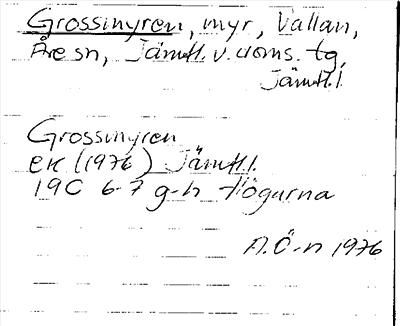 Grossmyren, myr, Vallan,
Åre sn, Jämtl. v. doms. tg,
Jämtl. l.
Grossmyren
EK (1976) Jämtl. l.
19C 6-7 g-h Högarna
A.Ö-n 1976